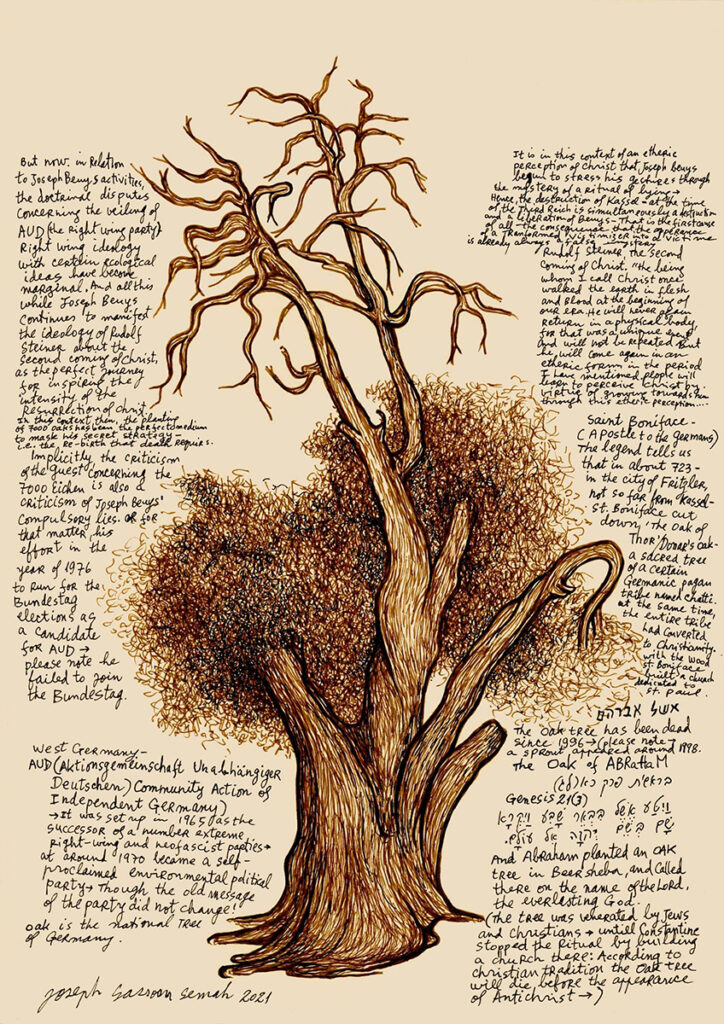 But now. in Relation
to Joseph Beuys activities,
the doctrinal disputes
concerning the veiling of
AUD (the right wing party)
Right wing ideology
with certain ecological
ideas have become
marginal. And all this
while Joseph Beuys
continues to manifest
the ideology of Rudolf
Steiner about the
second coming of Christ,
as the perfect journey
for inspiring the
intensity of the
Resurrection of Christ.
In this context then, the planting
of 7000 oaks has been the perfect medium
to mask his secret strategy –
i.e. the re-birth that death requires.
Implicitly the criticism
of the guest concerning the
7000 Eichen is also a
criticism of Joseph Beuys'
compulsory lies. or for
that matter his
effort in the
year of 1976
to run for the
Bundestag
elections as
a candidate
for AUD →
please note he
failed to join
the Bundestag.
West Germany –
AUD (Aktionsgemeinschaft Unabhängiger
Deutschen) Community Action of
Independent Germany)
→ It was set up in 1965 as the
successor of a number extreme
right-wing and neofascist parties →
at around 1970 became a self-
proclaimed environmental political
party → Though the old message
of the party did not change!
oak is the national Tree
of Germany.
Joseph Sassoon Semah 2021
It is in this context of an etheric
perception of Christ that Joseph Beuys
begun to stress his gestures through
the mystery of a ritual of dying →
Hence, the destruction of Kassel – at the time
of the Third Reich is simultaneously a destruction
and a celebration of Beuys – That is the first stance
of all – the consequence that the appearance
of a Transformed victimiser into a victim
is already always a false
Rudolf Steiner, the second
coming of Christ, "the being
whom I call Christ once
walked the earth in flesh
and blood at the beginning of
our era. He will never again
return in a physical body,
for that was a unique event
and will not be repeated But
he will come again in an
etheric form in the period
I have mentioned people will
learn to perceive Christ by
virtue of growing towards him
through this etheric perception...
Saint Boniface –
(Apostle to the Germans)
The legend tells us
that in about 723 –
in the city of Fritzler,
not so far from Kassel –
St. Boniface cut
down, 'The Oak of
Thor' Donar's Oak –
a sacred tree
of a certain
Germanic pagan
tribe named chatti
at the same time,
the entire tribe
had converted
to Christianity.
with the wood
St. Boniface
built a church
dedicated to
St. Paul.
אשל אברהם
The Oak tree has been dead
since 1996 → (please note →
a sprout appeared around 1998.
The Oak of ABRahaM
בראשית פרק כא (לג)
Genesis 21(3)
וַיִּטַּע אֶשֶׁל בִּבְאֵר שָׁבַע וַיִּקְרָא
שָׁם בְּשֵׁם יְהוָה אֵל עוֹלָם.
And Abraham planted an OAK
tree in Beersheba, and called
there on the name of the Lord,
the everlasting God.
(The tree was venerated by Jews
and Christians → untill Constantine
stopped the Ritual by building
a church there: According to
christian tradition the Oak tree
will die before the appearance
of Antichrist →)